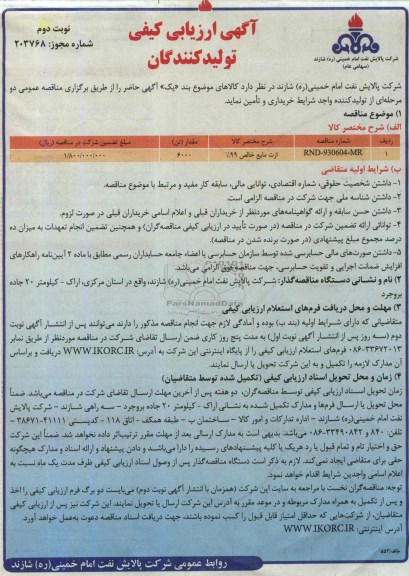 آگهی ارزیابی کیفی
تولیدکنندگان
نوبت دوم
شماره مجوز: ۲۰۳۷۶۸
شرکت پالایش نفت امام خمینی (ره) شازند
(سهامی عام)
شرکت پالایش نفت امام خمینی(ره) شازند در نظر دارد کالاهای موضوع بند «یک» آگهی حاضر را از طریق برگزاری مناقصه عمومی دو
مرحله‌ای از تولیدکننده واجد شرایط خریداری و تأمین نماید.
۱) موضوع مناقصه
الف) شرح مختصر کالا
ردیف شماره مناقصه شرح مختصر کالا مقدار (تن) مبلغ تضمین شرکت در مناقصه (ریال)
۱ RND-930604-MR ازت مایع خالص ۹۹٪ ۶۰۰۰ ۱/۸۰۰/۰۰۰/۰۰۰
ب) شرایط اولیه متقاضی
۱- داشتن شخصیت حقوقی، شماره اقتصادی، توانایی مالی، سابقه کار مفید و مرتبط با موضوع مناقصه.
۲- داشتن شناسه ملی جهت شرکت در مناقصه الزامی است.
۳- داشتن حسن سابقه و ارائه گواهینامه‌های موردنظر از خریداران قبلی و اعلام اسامی خریداران قبلی در صورت لزوم.
۴- توانائی ارائه تضمین شرکت در مناقصه (در صورت تأیید در ارزیابی کیفی مناقصه‌گران) و همچنین تضمین انجام تعهدات به میزان ده
درصد مجموع مبلغ پیشنهادی (در صورت برنده شدن در مناقصه).
۵- داشتن صورت‌های مالی حسابرسی شده توسط سازمان حسابرسی یا اعضاء جامعه حسابداران رسمی مطابق با ماده ۲ آیین‌نامه راهکارهای
افزایش ضمانت اجرایی و تقویت حسابرسی، جهت مناقصه فوق الزامی می‌باشد.
۲) نام و نشانی دستگاه مناقصه‌گذار: شرکت پالایش نفت امام خمینی(ره) شازند، واقع در استان مرکزی، اراک - کیلومتر ۲۰ جاده
بروجرد
۳) مهلت و محل دریافت فرم‌های استعلام ارزیابی کیفی
متقاضیانی که دارای شرایط اولیه (بند ب) بوده و آمادگی لازم جهت انجام مناقصه مذکور را دارند می‌توانند پس از انتشار آگهی نوبت
دوم (سه روز پس از انتشار آگهی نوبت اول) به مدت پنج روز کاری ضمن ارسال تقاضای شرکت در مناقصه موردنظر از طریق نمابر
۰۸۶-۳۳۶۷۲۰۱۳ فرم‌های استعلام ارزیابی کیفی را از پایگاه اینترنتی این شرکت به آدرس: WWW.IKORC.IR دریافت و براساس
آن مدارک لازمه را تکمیل و به این شرکت تحویل یا ارسال نمایند.
۴) زمان و محل تحویل اسناد ارزیابی کیفی (تکمیل شده توسط متقاضیان)
زمان تحویل اسناد ارزیابی کیفی توسط مناقصه‌گران، دو هفته پس از آخرین مهلت ارسال تقاضای شرکت در مناقصه می‌باشد. ضمناً
محل تحویل یا ارسال فرم‌ها و مدارک تکمیل شده به نشانی اراک - کیلومتر ۲۰ جاده بروجرد - سه راهی شازند - شرکت پالایش
نفت امام خمینی(ره) شازند - اداره تدارکات و امور کالا - ساختمان ب - طبقه همکف - اتاق ۱۱۸ - کدپستی ۴۱۱۱۱-۳۸۶۷۱ -
حق و اختیار تام و تمام قبول یا رد هریک یا کلیه پیشنهادهای رسیده را دارا می‌باشد و دادن پیشنهاد و ارائه اسناد و مدارک هیچگونه
حقی برای متقاضی ایجاد نمی‌کند. لازم به ذکر است دستگاه مناقصه‌گذار پس از وصول اسناد ارزیابی کیفی ظرف مدت یک ماه نسبت به
اعلام اسامی واجدین شرایط اقدام خواهد نمود.
توجه: مناقصه‌گران نخست با مراجعه به سایت این شرکت (همزمان با انتشار آگهی نوبت دوم) می‌بایست دو برگ فرم ارزیابی کیفی را اخذ
و پس از تکمیل به همراه مدارک مربوطه و در موعد مقرر به آدرس این شرکت ارسال یا تحویل نمایند. این شرکت نیز پس از ارزیابی کیفی
متقاضیان، از شرکت‌هایی که حداقل امتیاز قابل قبول را کسب نموده باشند، جهت دریافت اسناد مناقصه دعوت به‌عمل خواهد آورد.
آدرس اینترنتی: WWW.IKORC.IR
روابط عمومی شرکت پالایش نفت امام خمینی(ره) شازند